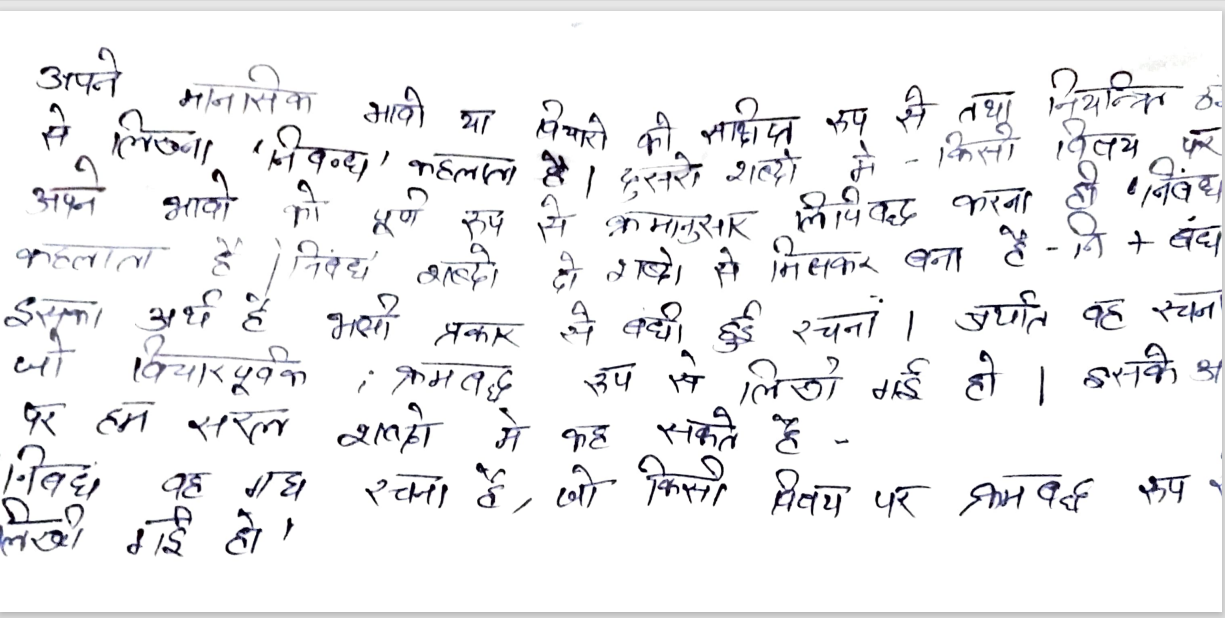 अपने मानसिक भावो या विचारो को संक्षिप्त रूप से तथा नियन्त्रित
से लिखना 'निबन्ध' कहलाता है। दुसरो शब्दो मे - किसी विषय पर
अपने भावो को पूर्ण रूप से क्रमानुसार लिपिबद्ध करना ही 'निबंध
कहलाता है। 'निबंध' शब्दो दो शब्दो से मिलकर बना है - नि + बंध
इसका अर्थ है भली प्रकार से बंधी हुई रचनां। अर्थात वह रचना
जो विचारपूर्वक, क्रमबद्ध रूप से लिखी गई हो। इसके
पर हम सरल शब्दो मे कह सकते है -
निबंध वह गद्य रचना है, जो किसी विषय पर क्रमबद्ध रूप
लिखी गई हो।